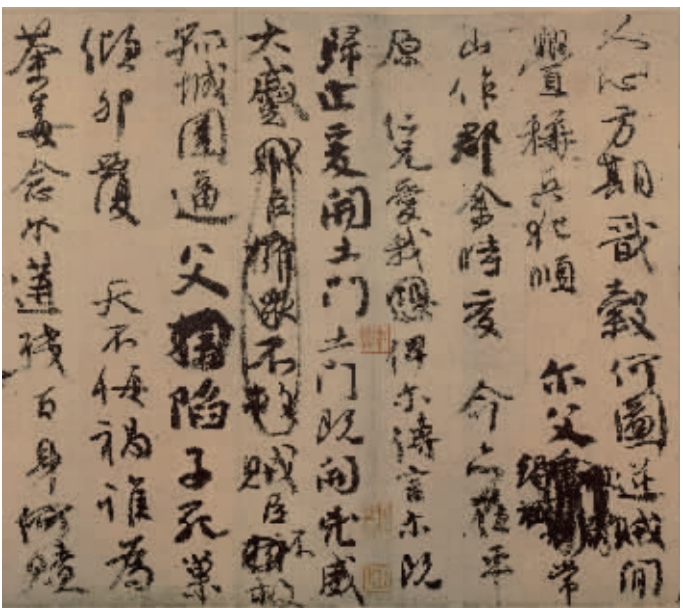 人心方期戩穀何圖逆賊閒
釁稱兵犯順 尓父常
山作郡余時受 命亦在平
原 仁兄愛我俾尓傳言尓既
歸止爰開土門土門既開兇威
大蹙賊臣擁眾不救賊臣不救
孤城圍逼父陷子死巢
傾卵覆 天不悔禍誰為
荼毒念尓遘殘百身何贖